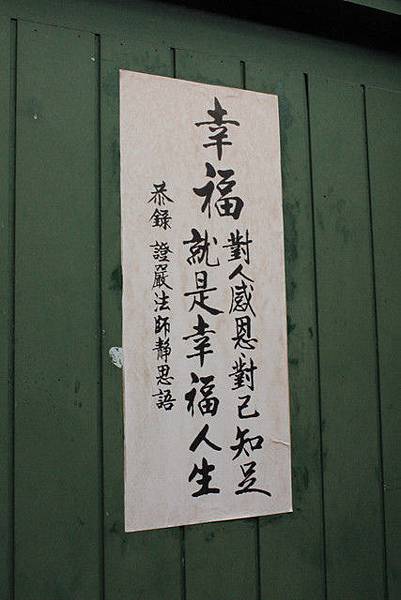 幸福
對人感恩,對己知足
就是幸福人生
恭錄 證嚴法師靜思語